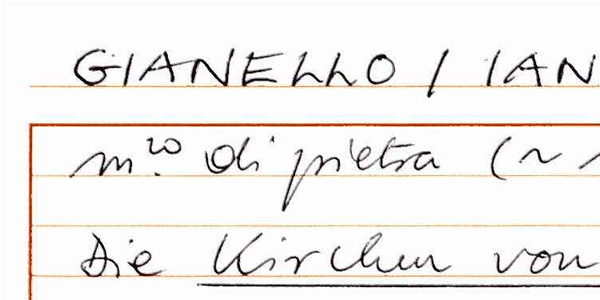 GIANELLO / IAN
m.ro di pietra (~
Die Kirchen von